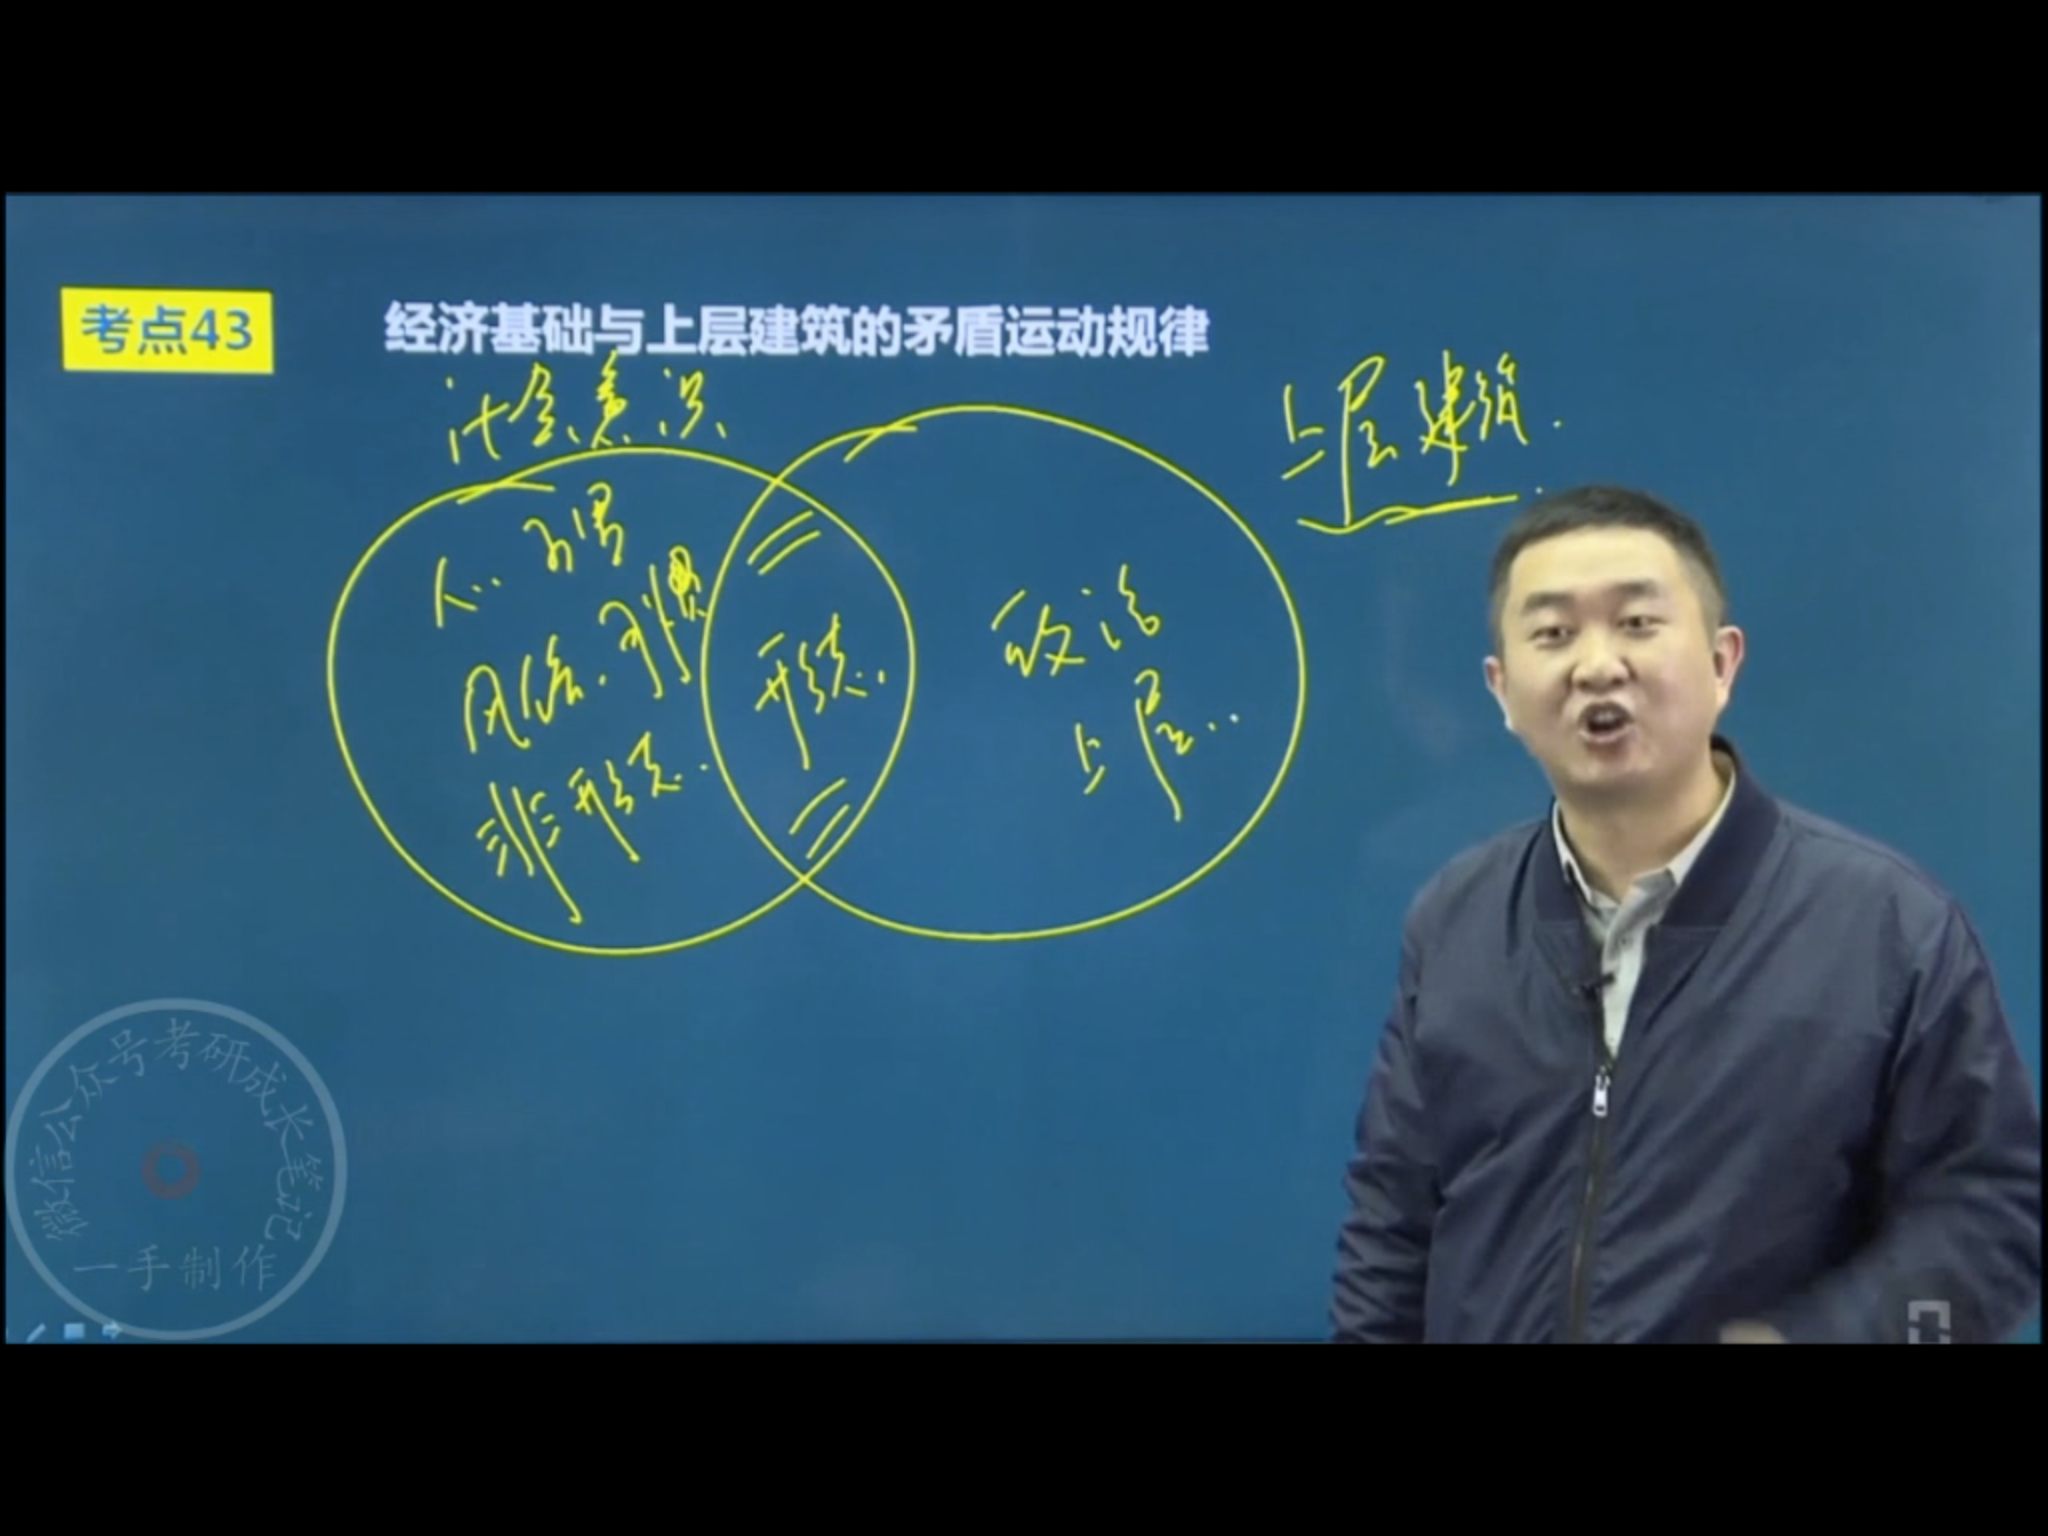 考点43
经济基础与上层建筑的矛盾运动规律
社会意识
上层建筑
风俗.习惯
非形态
形态
政治
上层
微信公众号考研成长笔记
一手制作